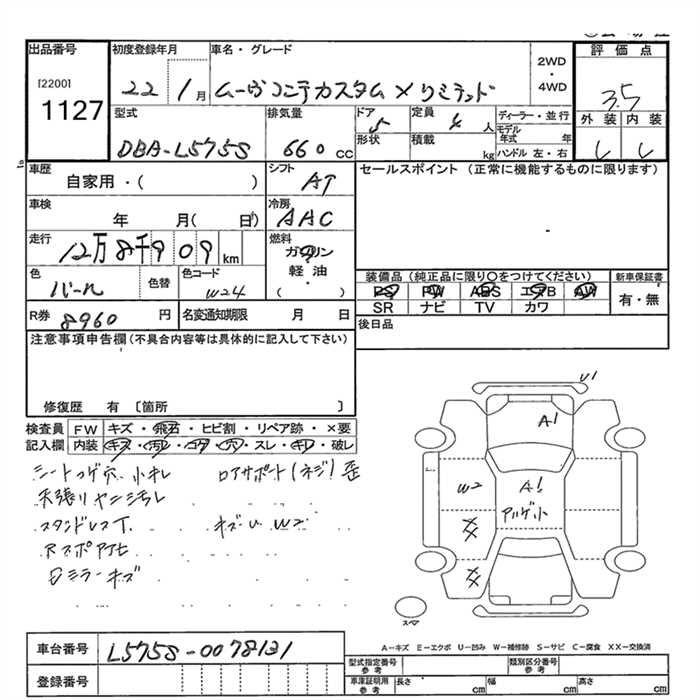 出品番号 初度登録年月 車名・グレード 2WD・4WD 評価点
[2200]
1127
22 1月 ムーヴコンテカスタム X リミテッド
3.5
外装 内装
型式 排気量 ドア 定員 ディーラー・並行
DBA-L575S 660cc 5 4人
モデル年式 年
形状 積載 kg ハンドル 左・右
車歴 シフト セールスポイント (正常に機能するものに限ります)
自家用・( ) AT
車検 冷房
年 月( 日) AAC
走行 燃料
12万8千909km ガソリン
軽油
( )
色 色替 色コード
パール W24
装備品(純正品に限り○をつけてください) 新車保証書
PS PW ABS エアB AW 有・無
SR ナビ TV カワ
R券 8960円 名変通知期限 月 日
後日品
注意事項申告欄(不具合内容等は具体的に記入して下さい)
修復歴 有 〔箇所 〕
検査員 FW キズ・飛石・ヒビ割・リペア跡・×要
記入欄 内装 キズ・汚レ・コゲ・穴・スレ・キレ・破レ
シートコゲ穴 小キレ ロアサポート(ネジ)歪
天張りヤニ汚レ
スタンドレスT キズU W2
Rスポアカヒ
Dミラーキズ
U1
A1
A1
アルゲ小
W2
XX
XX
スペア
A-キズ E-エクボ U-凹み W-補修跡 S-サビ C-腐食 XX-交換済
車台番号 L575S-0078131
登録番号
型式指定番号 参考 類別区分番号 参考
車庫証明用 参考 長さ cm 幅 cm 高さ cm